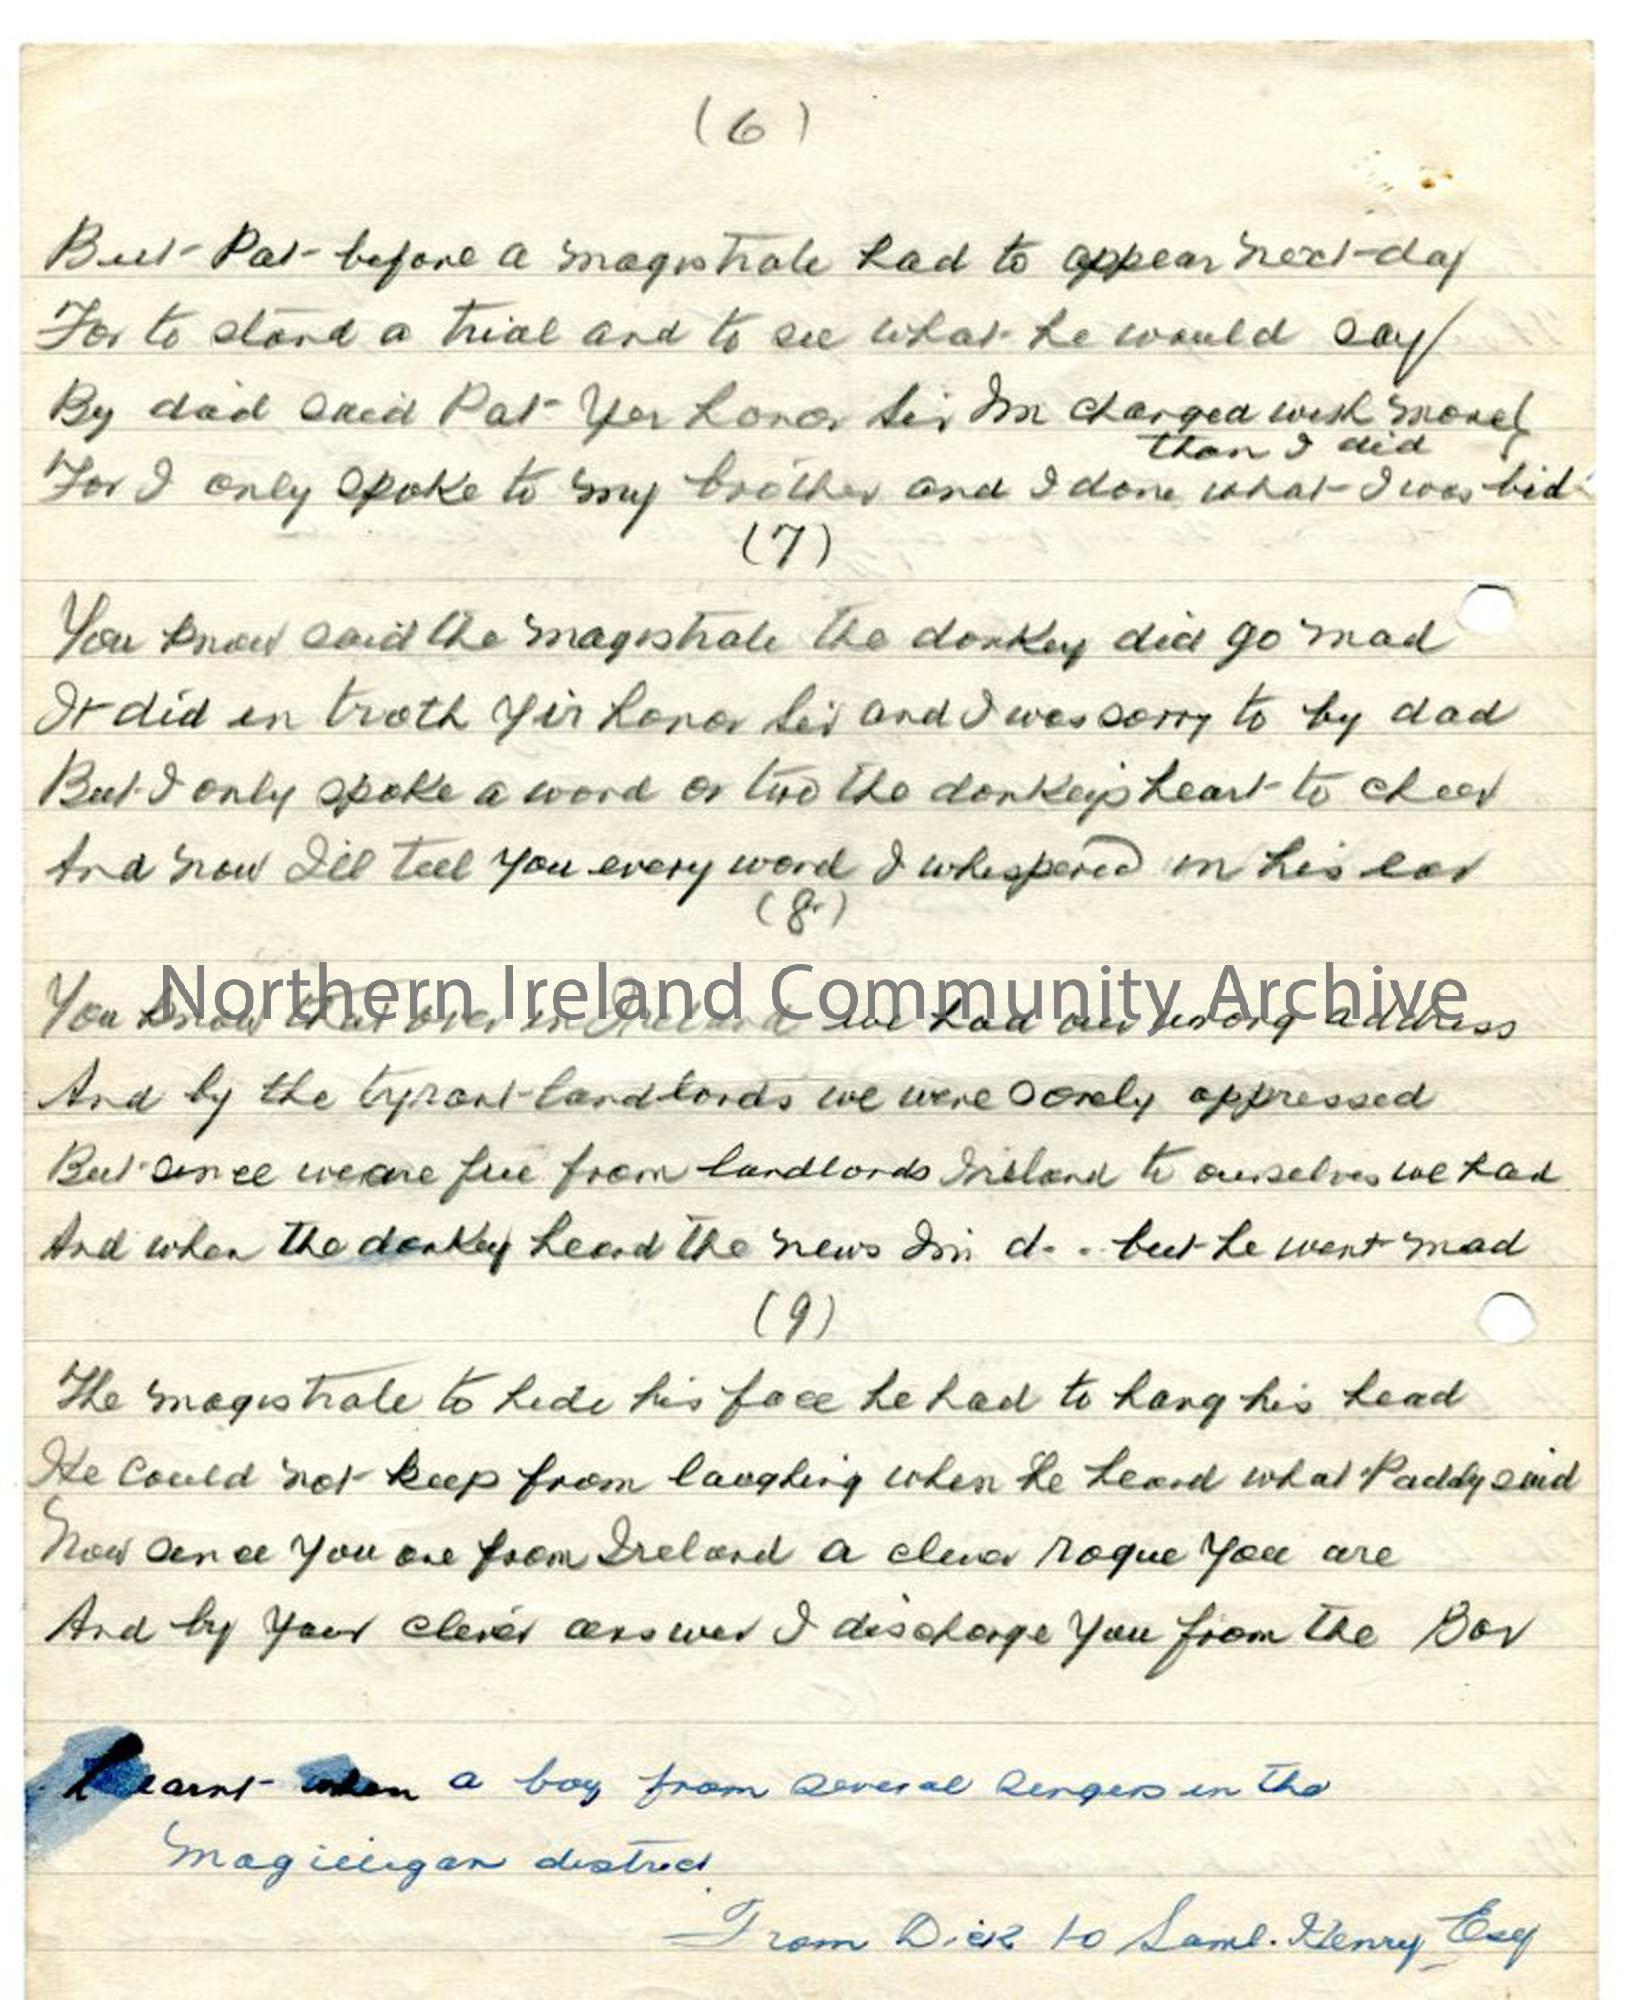 (6)
But Pat before a magistrate had to appear next day
For to stand a trial and to see what he would say
By dad said Pat Yer honor Sir Im charged with more
than I did
For I only spoke to my brother and I done what I was bid
(7)
You know said the magistrate the donkey did go mad
It did in troth Yir honor Sir and I was sorry to by dad
But I only spoke a word or two the donkeys heart to cheer
And now I'll tell you every word I whispered in his ear
(8)
Northern Ireland Community Archive
You know that over in Ireland we had our wrong address
And by the tyrant landlords we were sorely oppressed
But since we are free from landlords Ireland to ourselves we had
And when the donkey heard the news Im d. . but he went mad
(9)
The magistrate to hide his face he had to hang his head
He could not keep from laughing when he heard what Paddy said
Now since you are from Ireland a clever rogue you are
And by your clever answer I discharge you from the Bar
Learnt when a boy from several singers in the
Magilligan district.
From Dick to Saml. Henry Esq